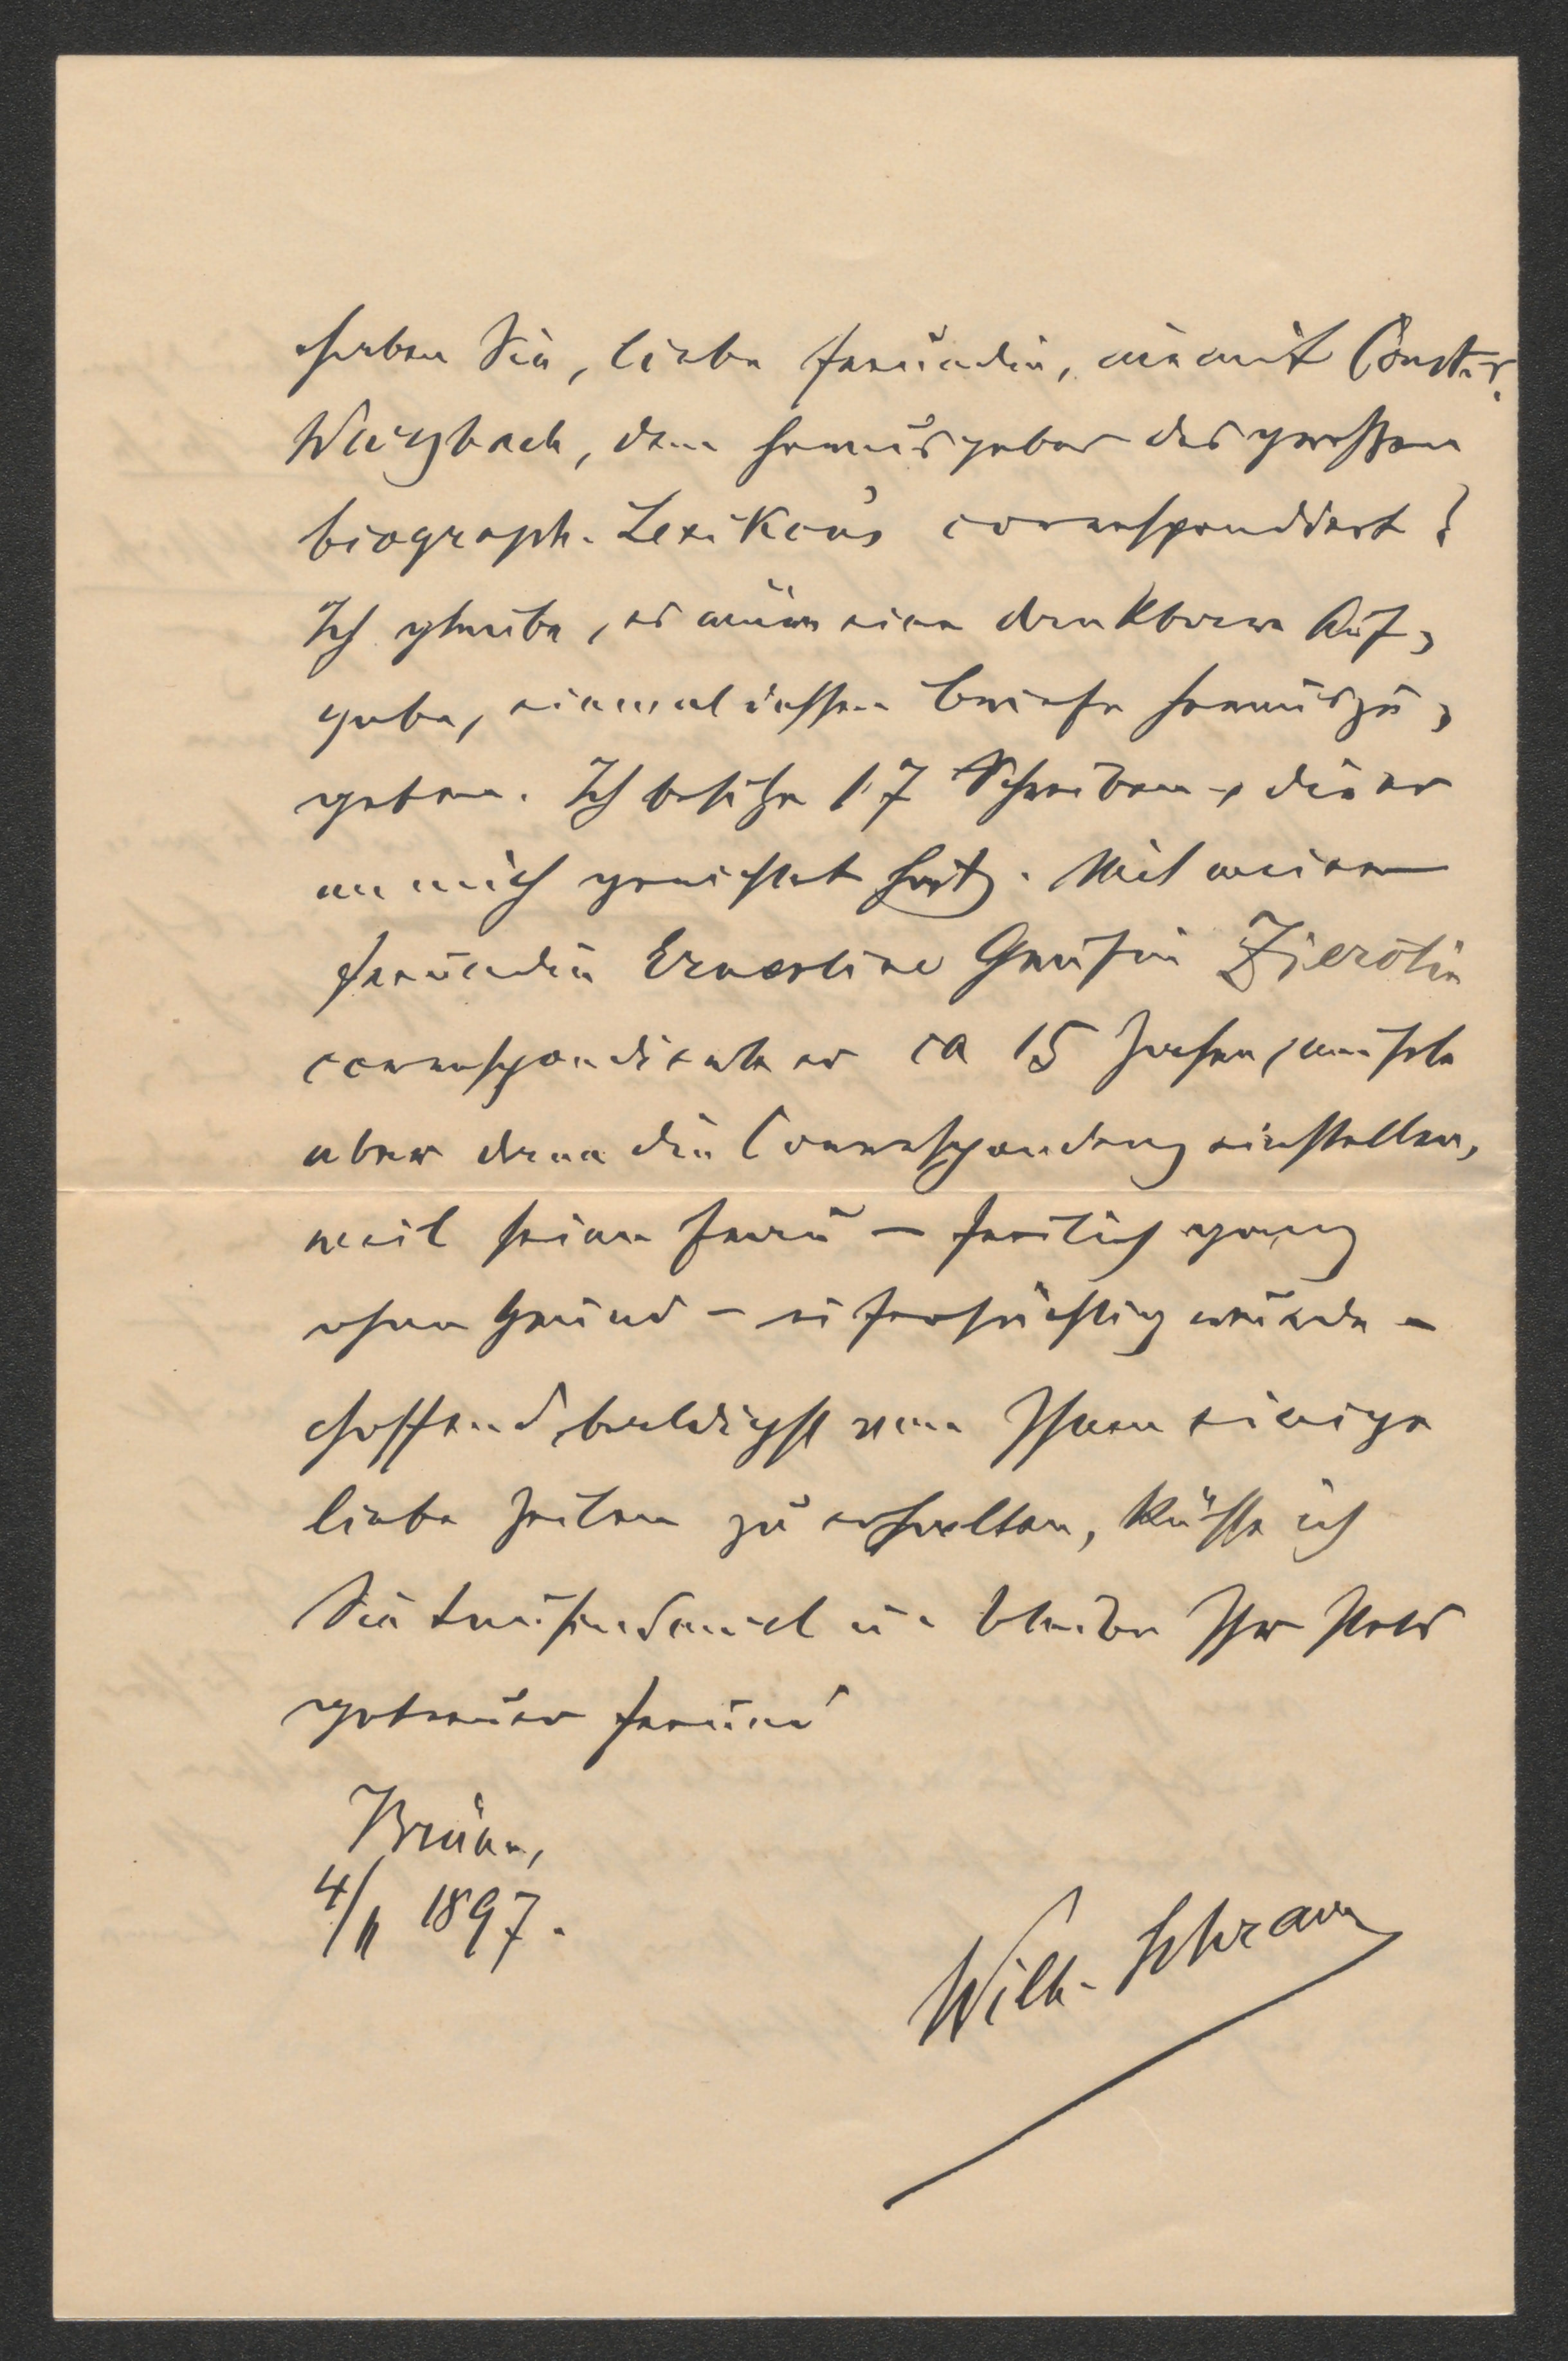 Haben Sie, liebe Freundin, nie mit Const. v.
Wurzbach, dem Herausgeber des grossen
biograph. Lexikons correspondiert?
Ich glaube, es wäre eine dankbare Auf-
gabe, einmal dessen Briefe herauszu-
geben. Ich besitze 17 Schreiben, die er
an mich gerichtet hat. Mit meiner
Freundin Ernestine Gräfin Zierotin
correspondierte er ca 15 Jahre, musste
aber dann die Correspondenz einstellen,
weil seine Frau – freilich ganz
ohne Grund – eifersüchtig wurde –
Hoffend, baldigst von Ihnen einige
liebe Zeilen zu erhalten, küsse ich
Sie tausendmal u. bleibe Ihr stets
getreuer Freund
Brünn,
4/11 1897.
Wilh. Schram